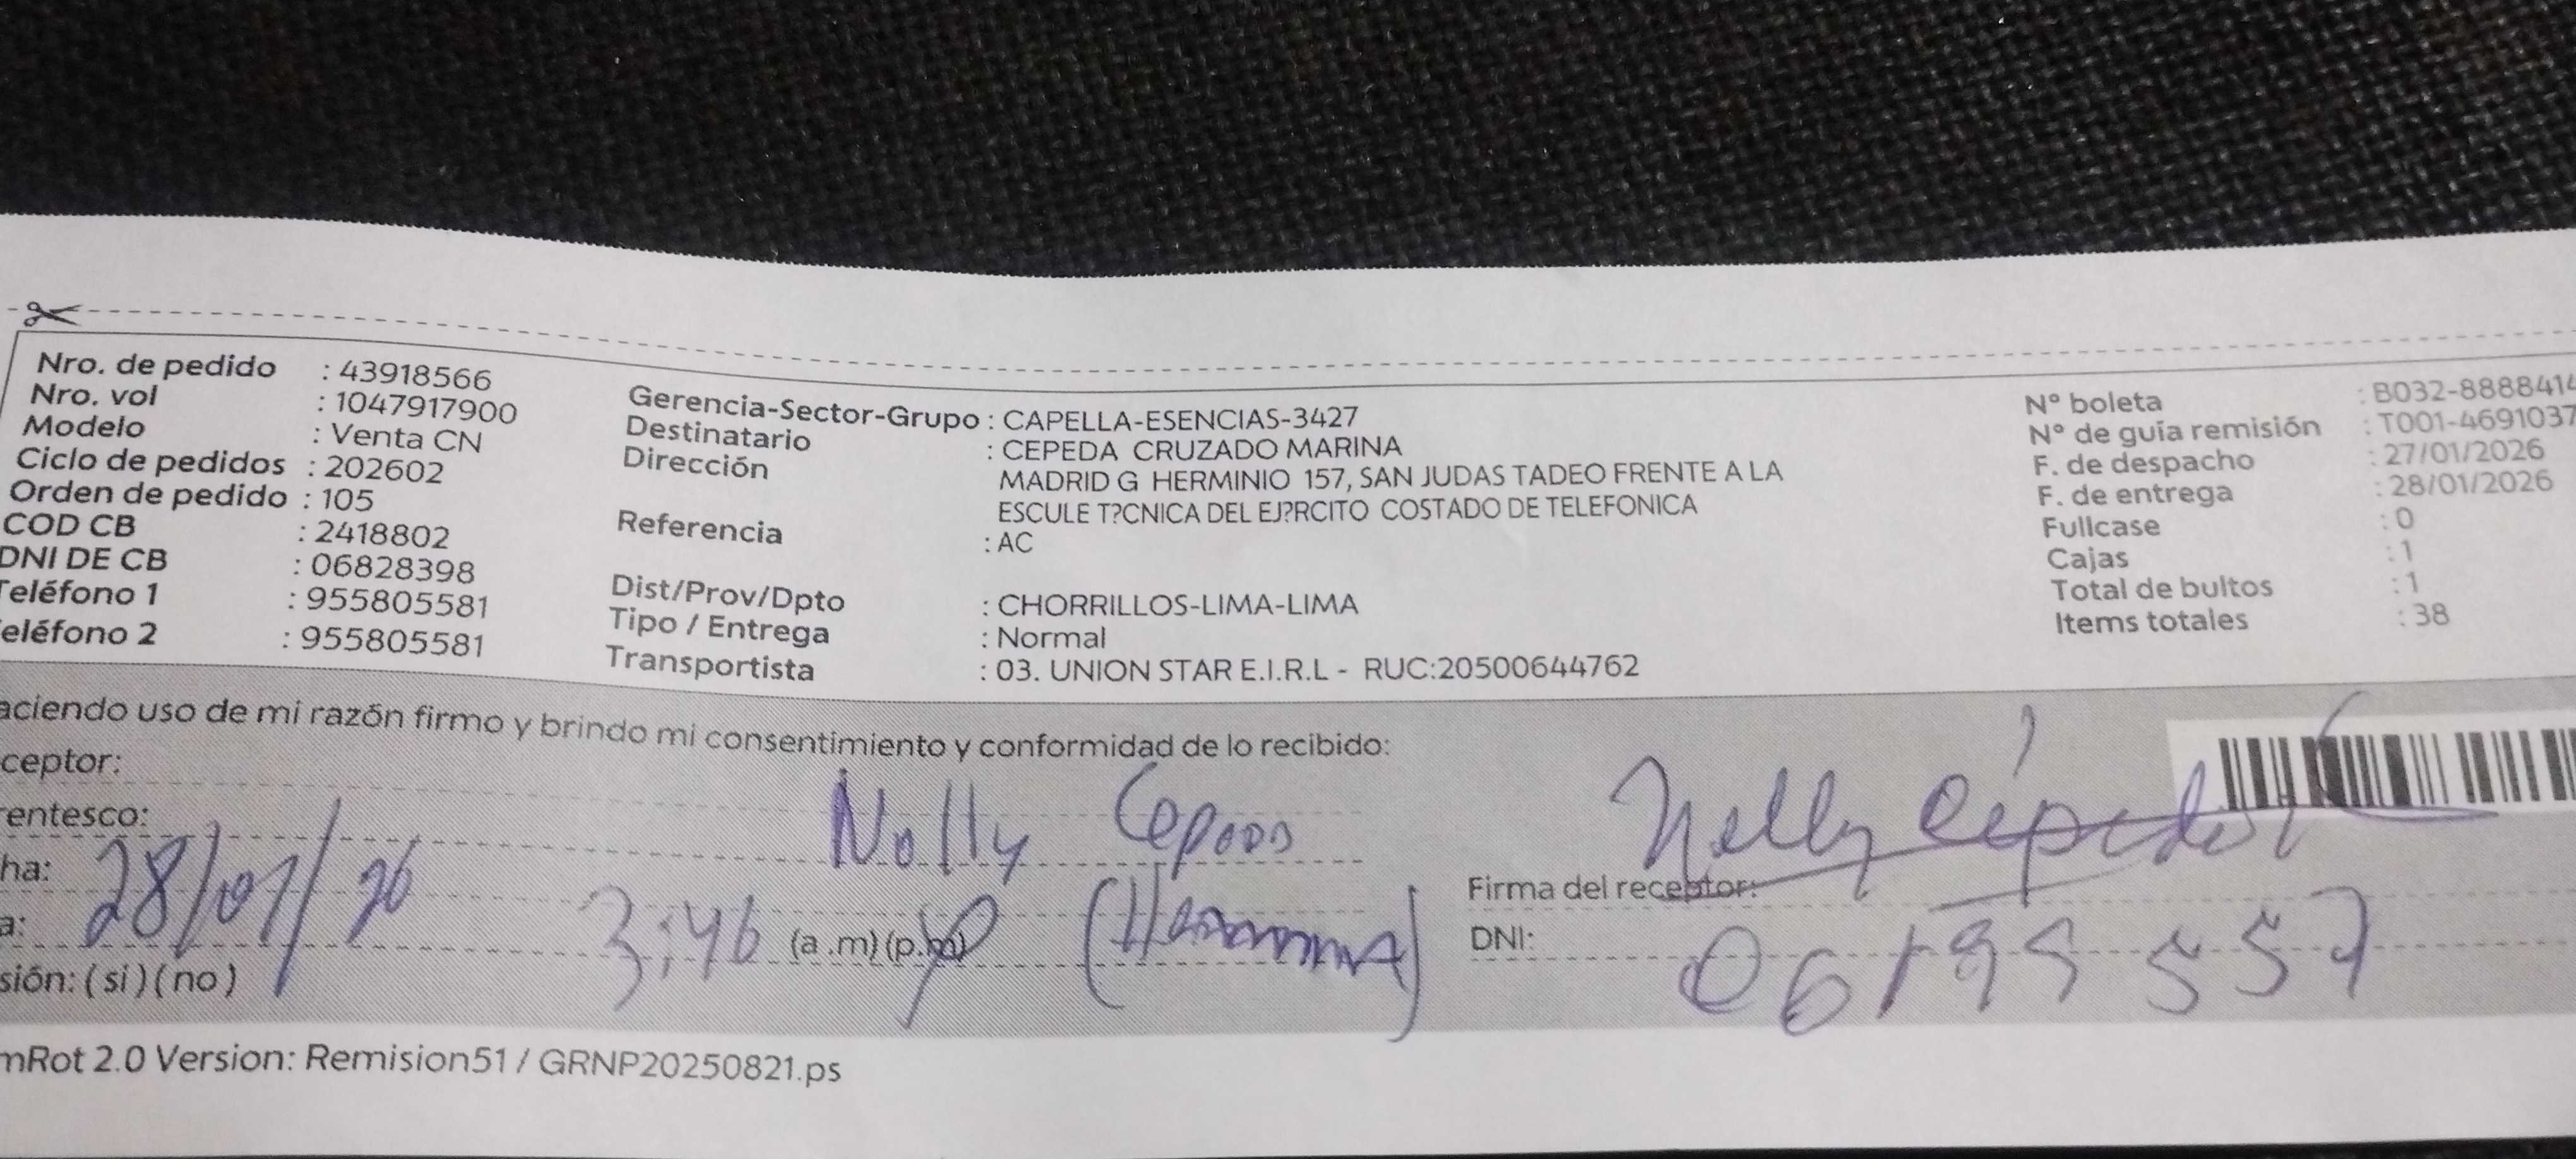 Nro. de pedido : 43918566
Nro. vol : 1047917900
Modelo : Venta CN
Ciclo de pedidos : 202602
Orden de pedido : 105
COD CB : 2418802
DNI DE CB : 06828398
Teléfono 1 : 955805581
eléfono 2 : 955805581
Gerencia-Sector-Grupo : CAPELLA-ESENCIAS-3427
Destinatario : CEPEDA CRUZADO MARINA
Dirección MADRID G HERMINIO 157, SAN JUDAS TADEO FRENTE A LA
ESCULE T?CNICA DEL EJ?RCITO COSTADO DE TELEFONICA
Referencia : AC
Dist/Prov/Dpto : CHORRILLOS-LIMA-LIMA
Tipo / Entrega : Normal
Transportista : 03. UNION STAR E.I.R.L - RUC:20500644762
N° boleta : B032-8888414
N° de guía remisión : T001-4691037
F. de despacho : 27/01/2026
F. de entrega : 28/01/2026
Fullcase : 0
Cajas : 1
Total de bultos : 1
Items totales : 38
aciendo uso de mi razón firmo y brindo mi consentimiento y conformidad de lo recibido:
ceptor:
rentesco: Nelly Cepeda
ha: 28/01/26
a: 3:46 (a .m) (p.m) (Hermana)
sión: ( si ) ( no )
Nelly Cépeda
Firma del receptor:
DNI: 06199557
mRot 2.0 Version: Remision51 / GRNP20250821.ps